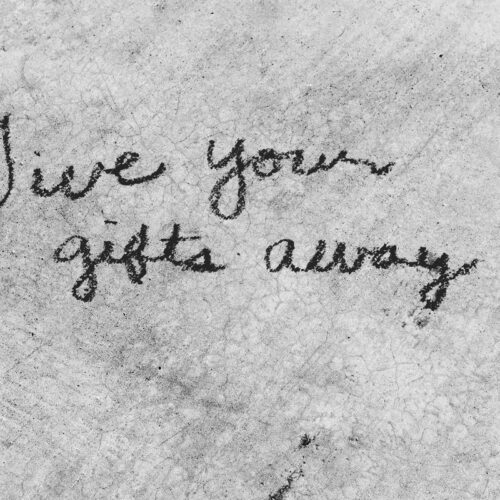 Give your
gifts away